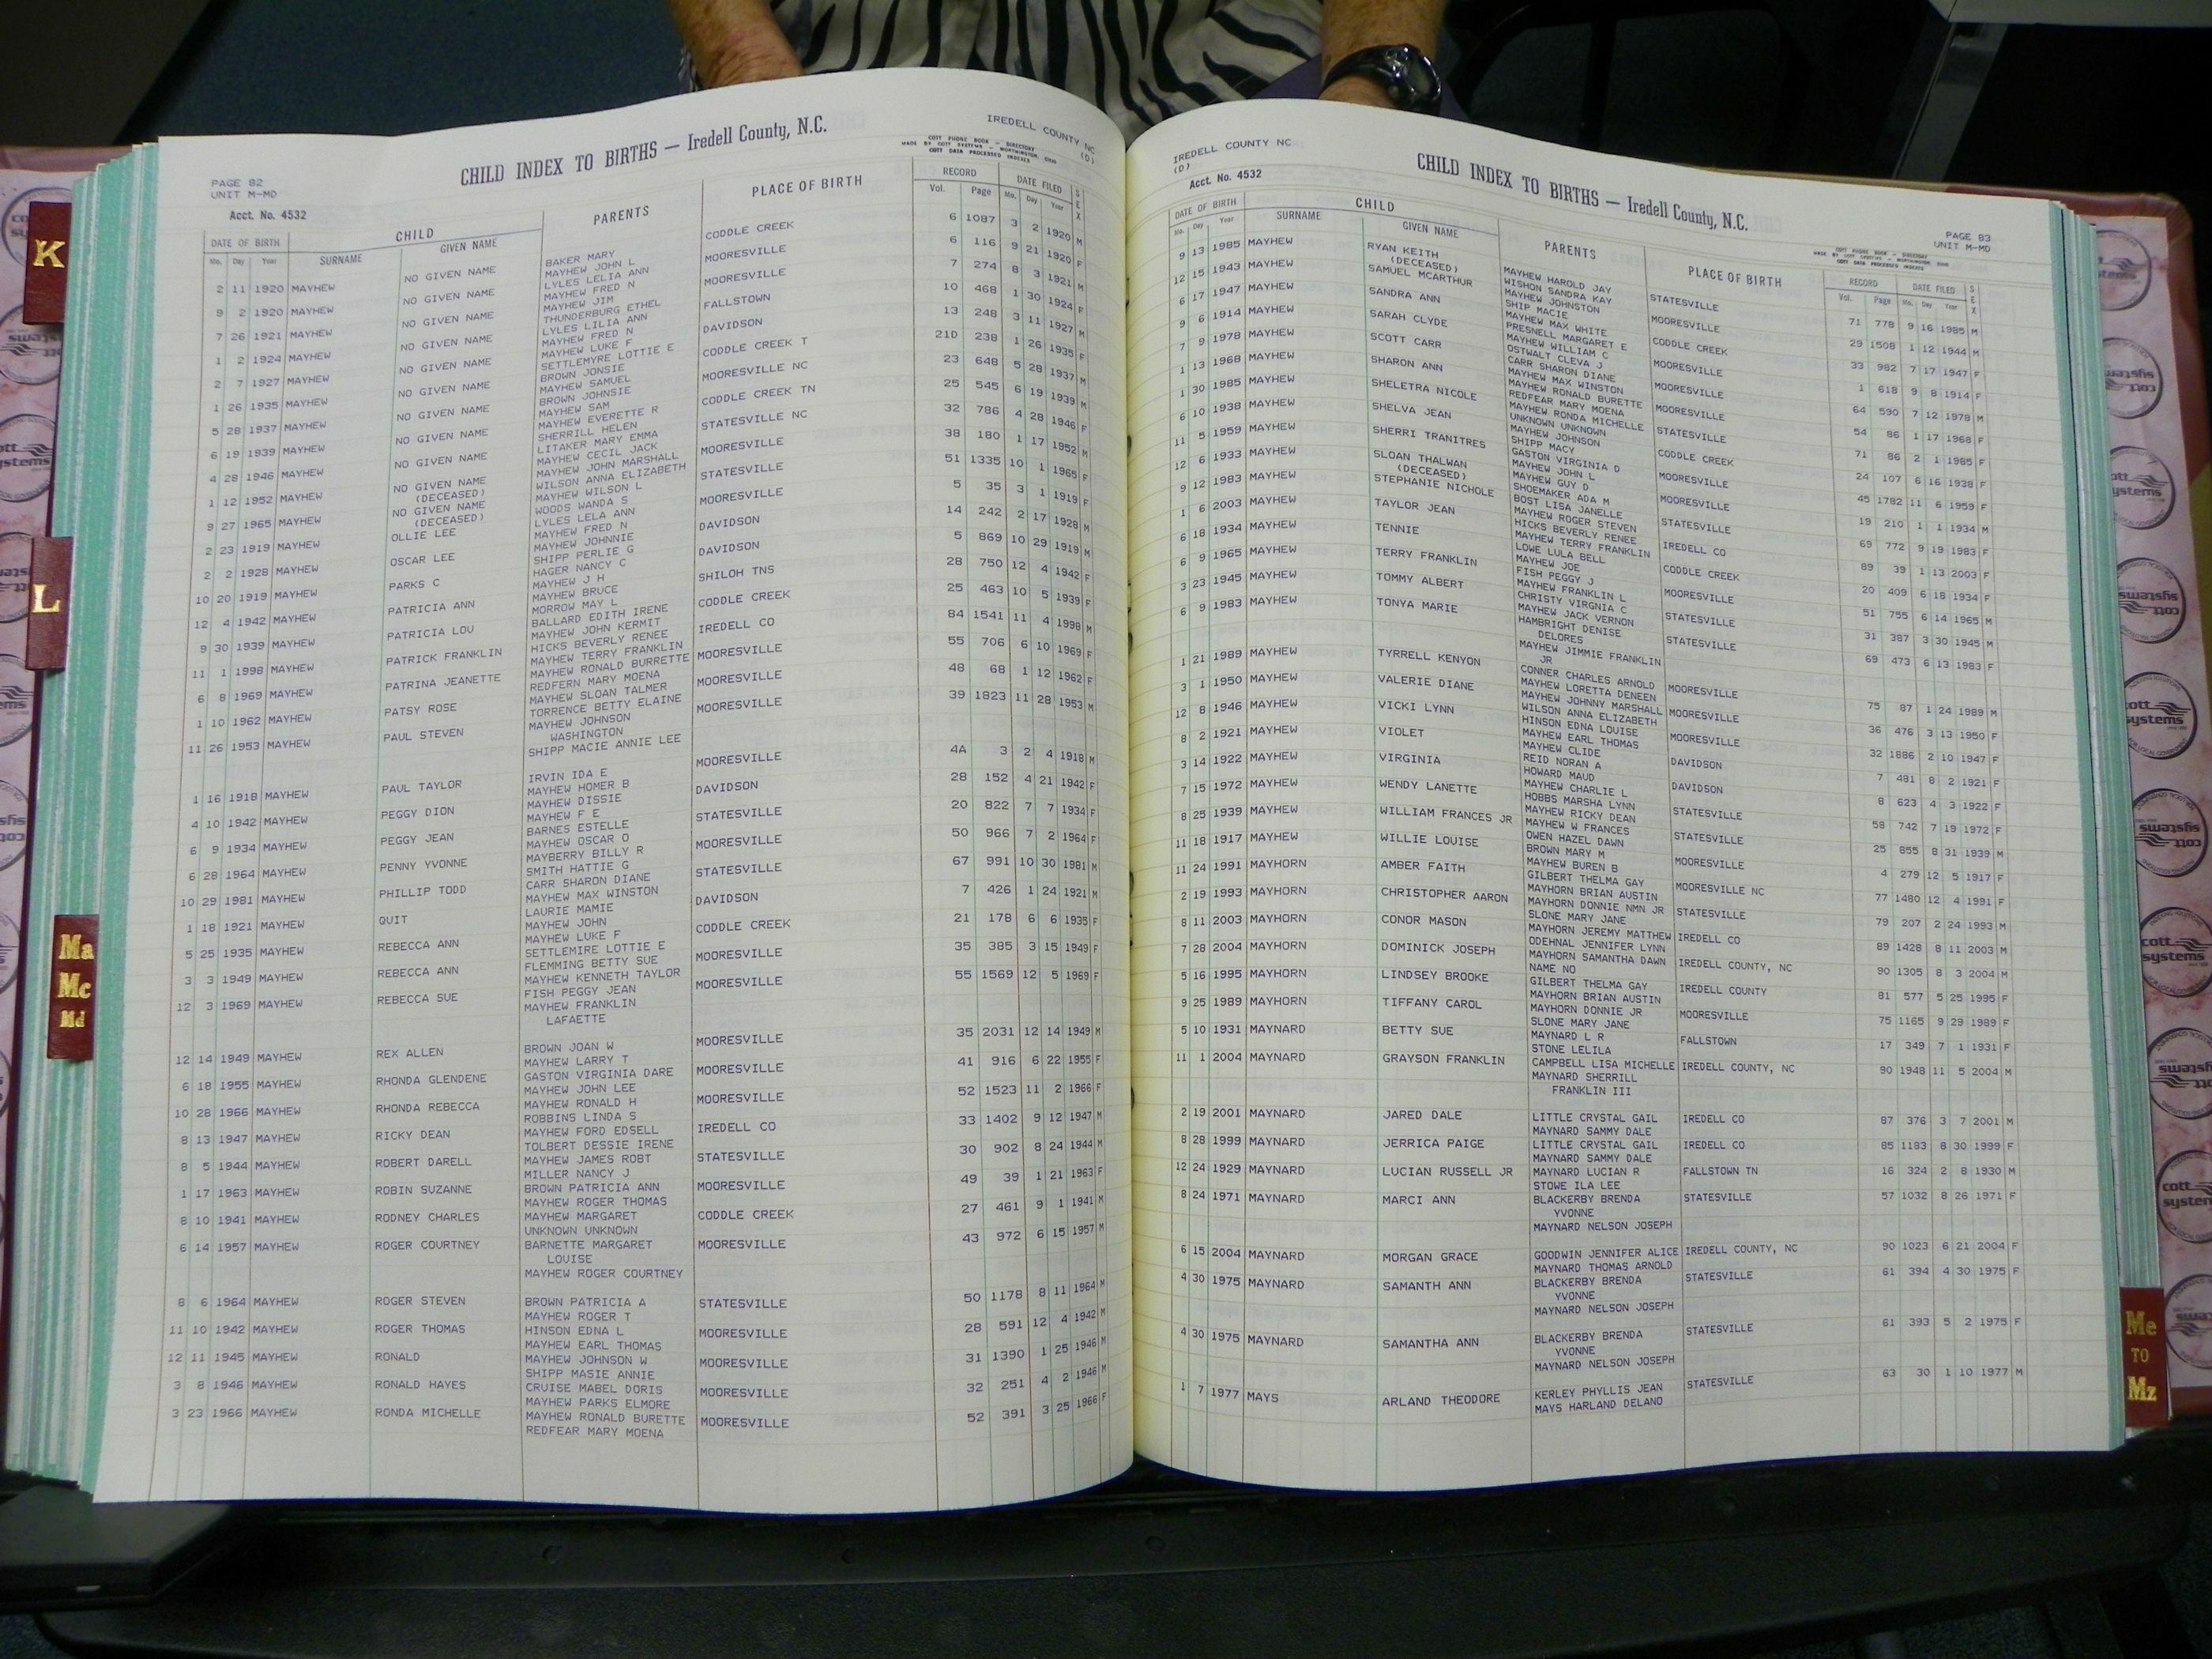 IREDELL COUNTY NC
(D)
CHILD INDEX TO BIRTHS — Iredell County, N.C.
COTT PHONE BOOK - DIRECTORY
MADE BY COTT SYSTEMS - WORTHINGTON, OHIO
COTT DATA PROCESSED INDEXES
PAGE 82
UNIT M-MD
Acct. No. 4532
DATE OF BIRTH CHILD PARENTS PLACE OF BIRTH RECORD DATE FILED SEX
Mo. Day Year SURNAME GIVEN NAME Vol. Page Mo. Day Year
2 11 1920 MAYHEW NO GIVEN NAME BAKER MARY CODDLE CREEK 6 1087 3 2 1920 M
MAYHEW JOHN L
9 2 1920 MAYHEW NO GIVEN NAME LYLES LELIA ANN MOORESVILLE 6 116 9 21 1920 F
MAYHEW FRED N
7 26 1921 MAYHEW NO GIVEN NAME MAYHEW JIM MOORESVILLE 7 274 8 3 1921 M
THUNDERBURG ETHEL
1 2 1924 MAYHEW NO GIVEN NAME LYLES LILIA ANN FALLSTOWN 10 468 1 30 1924 F
MAYHEW FRED N
2 7 1927 MAYHEW NO GIVEN NAME MAYHEW LUKE F DAVIDSON 13 248 3 11 1927 M
SETTLEMYRE LOTTIE E
1 26 1935 MAYHEW NO GIVEN NAME BROWN JONSIE CODDLE CREEK T 21D 238 1 26 1935 F
MAYHEW SAMUEL
5 28 1937 MAYHEW NO GIVEN NAME BROWN JOHNSIE MOORESVILLE NC 23 648 5 28 1937 M
MAYHEW SAM
6 19 1939 MAYHEW NO GIVEN NAME MAYHEW EVERETTE R CODDLE CREEK TN 25 545 6 19 1939 M
SHERRILL HELEN
4 28 1946 MAYHEW NO GIVEN NAME LITAKER MARY EMMA STATESVILLE NC 32 786 4 28 1946 F
MAYHEW CECIL JACK
1 12 1952 MAYHEW NO GIVEN NAME MAYHEW JOHN MARSHALL MOORESVILLE 38 180 1 17 1952 M
(DECEASED) WILSON ANNA ELIZABETH
9 27 1965 MAYHEW NO GIVEN NAME MAYHEW WILSON L STATESVILLE 51 1335 10 1 1965 F
(DECEASED) WOODS WANDA S
2 23 1919 MAYHEW OLLIE LEE LYLES LELA ANN MOORESVILLE 5 35 3 1 1919 F
MAYHEW FRED N
2 2 1928 MAYHEW OSCAR LEE MAYHEW JOHNNIE DAVIDSON 14 242 2 17 1928 M
SHIPP PERLIE G
10 20 1919 MAYHEW PARKS C HAGER NANCY C DAVIDSON 5 869 10 29 1919 M
MAYHEW J H
12 4 1942 MAYHEW PATRICIA ANN MAYHEW BRUCE SHILOH TNS 28 750 12 4 1942 F
MORROW MAY L
9 30 1939 MAYHEW PATRICIA LOU BALLARD EDITH IRENE CODDLE CREEK 25 463 10 5 1939 F
MAYHEW JOHN KERMIT
11 1 1998 MAYHEW PATRICK FRANKLIN HICKS BEVERLY RENEE IREDELL CO 84 1541 11 4 1998 M
MAYHEW TERRY FRANKLIN
6 8 1969 MAYHEW PATRINA JEANETTE MAYHEW RONALD BURRETTE MOORESVILLE 55 706 6 10 1969 F
REDFERN MARY MOENA
1 10 1962 MAYHEW PATSY ROSE MAYHEW SLOAN TALMER MOORESVILLE 48 68 1 12 1962 F
TORRENCE BETTY ELAINE
11 26 1953 MAYHEW PAUL STEVEN MAYHEW JOHNSON MOORESVILLE 39 1823 11 28 1953 M
WASHINGTON
SHIPP MACIE ANNIE LEE
1 16 1918 MAYHEW PAUL TAYLOR IRVIN IDA E MOORESVILLE 4A 3 2 4 1918 M
MAYHEW HOMER B
4 10 1942 MAYHEW PEGGY DION MAYHEW DISSIE DAVIDSON 28 152 4 21 1942 F
MAYHEW F E
6 9 1934 MAYHEW PEGGY JEAN BARNES ESTELLE STATESVILLE 20 822 7 7 1934 F
MAYHEW OSCAR O
6 28 1964 MAYHEW PENNY YVONNE MAYBERRY BILLY R MOORESVILLE 50 966 7 2 1964 F
SMITH HATTIE G
10 29 1981 MAYHEW PHILLIP TODD CARR SHARON DIANE STATESVILLE 67 991 10 30 1981 M
MAYHEW MAX WINSTON
1 18 1921 MAYHEW QUIT LAURIE MAMIE DAVIDSON 7 426 1 24 1921 M
MAYHEW JOHN
5 25 1935 MAYHEW REBECCA ANN MAYHEW LUKE F CODDLE CREEK 21 178 6 6 1935 F
SETTLEMIRE LOTTIE E
3 3 1949 MAYHEW REBECCA ANN FLEMMING BETTY SUE MOORESVILLE 35 385 3 15 1949 F
MAYHEW KENNETH TAYLOR
12 3 1969 MAYHEW REBECCA SUE FISH PEGGY JEAN MOORESVILLE 55 1569 12 5 1969 F
MAYHEW FRANKLIN
LAFAETTE
12 14 1949 MAYHEW REX ALLEN BROWN JOAN W MOORESVILLE 35 2031 12 14 1949 M
MAYHEW LARRY T
6 18 1955 MAYHEW RHONDA GLENDENE GASTON VIRGINIA DARE MOORESVILLE 41 916 6 22 1955 F
MAYHEW JOHN LEE
10 28 1966 MAYHEW RHONDA REBECCA MAYHEW RONALD H MOORESVILLE 52 1523 11 2 1966 F
ROBBINS LINDA S
8 13 1947 MAYHEW RICKY DEAN MAYHEW FORD EDSELL IREDELL CO 33 1402 9 12 1947 M
TOLBERT DESSIE IRENE
8 5 1944 MAYHEW ROBERT DARELL MAYHEW JAMES ROBT STATESVILLE 30 902 8 24 1944 M
MILLER NANCY J
1 17 1963 MAYHEW ROBIN SUZANNE BROWN PATRICIA ANN MOORESVILLE 49 39 1 21 1963 F
MAYHEW ROGER THOMAS
8 10 1941 MAYHEW RODNEY CHARLES MAYHEW MARGARET CODDLE CREEK 27 461 9 1 1941 M
UNKNOWN UNKNOWN
6 14 1957 MAYHEW ROGER COURTNEY BARNETTE MARGARET MOORESVILLE 43 972 6 15 1957 M
LOUISE
MAYHEW ROGER COURTNEY
8 6 1964 MAYHEW ROGER STEVEN BROWN PATRICIA A STATESVILLE 50 1178 8 11 1964 M
MAYHEW ROGER T
11 10 1942 MAYHEW ROGER THOMAS HINSON EDNA L MOORESVILLE 28 591 12 4 1942 M
MAYHEW EARL THOMAS
12 11 1945 MAYHEW RONALD MAYHEW JOHNSON W MOORESVILLE 31 1390 1 25 1946 M
SHIPP MASIE ANNIE
3 8 1946 MAYHEW RONALD HAYES CRUISE MABEL DORIS MOORESVILLE 32 251 4 2 1946 M
MAYHEW PARKS ELMORE
3 23 1966 MAYHEW RONDA MICHELLE MAYHEW RONALD BURETTE MOORESVILLE 52 391 3 25 1966 F
REDFEAR MARY MOENA
IREDELL COUNTY NC
(D)
CHILD INDEX TO BIRTHS — Iredell County, N.C.
Acct. No. 4532
PAGE 83
UNIT M-MD
COTT PHONE BOOK - DIRECTORY
MADE BY COTT SYSTEMS - WORTHINGTON, OHIO
COTT DATA PROCESSED INDEXES
DATE OF BIRTH CHILD PARENTS PLACE OF BIRTH RECORD DATE FILED SEX
Mo. Day Year SURNAME GIVEN NAME Vol. Page Mo. Day Year
9 13 1985 MAYHEW RYAN KEITH MAYHEW HAROLD JAY STATESVILLE 71 778 9 16 1985 M
(DECEASED) WISHON SANDRA KAY
12 15 1943 MAYHEW SAMUEL MCARTHUR MAYHEW JOHNSTON MOORESVILLE 29 1508 1 12 1944 M
SHIP MACIE
6 17 1947 MAYHEW SANDRA ANN MAYHEW MAX WHITE CODDLE CREEK 33 982 7 17 1947 F
PRESNELL MARGARET E
9 6 1914 MAYHEW SARAH CLYDE MAYHEW WILLIAM C MOORESVILLE 1 618 9 8 1914 F
OSTWALT CLEVA J
7 9 1978 MAYHEW SCOTT CARR CARR SHARON DIANE MOORESVILLE 64 590 7 12 1978 M
MAYHEW MAX WINSTON
1 13 1968 MAYHEW SHARON ANN MAYHEW RONALD BURETTE MOORESVILLE 54 86 1 17 1968 F
REDFEAR MARY MOENA
1 30 1985 MAYHEW SHELETRA NICOLE MAYHEW RONDA MICHELLE STATESVILLE 71 86 2 1 1985 F
UNKNOWN UNKNOWN
6 10 1938 MAYHEW SHELVA JEAN MAYHEW JOHNSON CODDLE CREEK 24 107 6 16 1938 F
SHIPP MACY
11 5 1959 MAYHEW SHERRI TRANITRES GASTON VIRGINIA D MOORESVILLE 45 1782 11 6 1959 F
MAYHEW JOHN L
12 6 1933 MAYHEW SLOAN THALWAN MAYHEW GUY D MOORESVILLE 19 210 1 1 1934 M
(DECEASED) SHOEMAKER ADA M
9 12 1983 MAYHEW STEPHANIE NICHOLE BOST LISA JANELLE STATESVILLE 69 772 9 19 1983 F
MAYHEW ROGER STEVEN
1 6 2003 MAYHEW TAYLOR JEAN HICKS BEVERLY RENEE IREDELL CO 89 39 1 13 2003 F
MAYHEW TERRY FRANKLIN
6 18 1934 MAYHEW TENNIE LOWE LULA BELL CODDLE CREEK 20 409 6 18 1934 F
MAYHEW JOE
6 9 1965 MAYHEW TERRY FRANKLIN FISH PEGGY J MOORESVILLE 51 755 6 14 1965 M
MAYHEW FRANKLIN L
3 23 1945 MAYHEW TOMMY ALBERT CHRISTY VIRGNIA C STATESVILLE 31 387 3 30 1945 M
MAYHEW JACK VERNON
6 9 1983 MAYHEW TONYA MARIE HAMBRIGHT DENISE STATESVILLE 69 473 6 13 1983 F
DELORES
MAYHEW JIMMIE FRANKLIN
JR
1 21 1989 MAYHEW TYRRELL KENYON CONNER CHARLES ARNOLD MOORESVILLE 75 87 1 24 1989 M
MAYHEW LORETTA DENEEN
3 1 1950 MAYHEW VALERIE DIANE MAYHEW JOHNNY MARSHALL MOORESVILLE 36 476 3 13 1950 F
WILSON ANNA ELIZABETH
12 8 1946 MAYHEW VICKI LYNN HINSON EDNA LOUISE MOORESVILLE 32 1886 2 10 1947 F
MAYHEW EARL THOMAS
8 2 1921 MAYHEW VIOLET MAYHEW CLIDE DAVIDSON 7 481 8 2 1921 F
REID NORAN A
3 14 1922 MAYHEW VIRGINIA HOWARD MAUD DAVIDSON 8 623 4 3 1922 F
MAYHEW CHARLIE L
7 15 1972 MAYHEW WENDY LANETTE HOBBS MARSHA LYNN STATESVILLE 58 742 7 19 1972 F
MAYHEW RICKY DEAN
8 25 1939 MAYHEW WILLIAM FRANCES JR MAYHEW W FRANCES STATESVILLE 25 855 8 31 1939 M
OWEN HAZEL DAWN
11 18 1917 MAYHEW WILLIE LOUISE BROWN MARY M MOORESVILLE 4 279 12 5 1917 F
MAYHEW BUREN B
11 24 1991 MAYHORN AMBER FAITH GILBERT THELMA GAY MOORESVILLE NC 77 1480 12 4 1991 F
MAYHORN BRIAN AUSTIN
2 19 1993 MAYHORN CHRISTOPHER AARON MAYHORN DONNIE NMN JR STATESVILLE 79 207 2 24 1993 M
SLONE MARY JANE
8 11 2003 MAYHORN CONOR MASON MAYHORN JEREMY MATTHEW IREDELL CO 89 1428 8 11 2003 M
ODEHNAL JENNIFER LYNN
7 28 2004 MAYHORN DOMINICK JOSEPH MAYHORN SAMANTHA DAWN IREDELL COUNTY, NC 90 1305 8 3 2004 M
NAME NO
5 16 1995 MAYHORN LINDSEY BROOKE GILBERT THELMA GAY IREDELL COUNTY 81 577 5 25 1995 F
MAYHORN BRIAN AUSTIN
9 25 1989 MAYHORN TIFFANY CAROL MAYHORN DONNIE JR MOORESVILLE 75 1165 9 29 1989 F
SLONE MARY JANE
5 10 1931 MAYNARD BETTY SUE MAYNARD L R FALLSTOWN 17 349 7 1 1931 F
STONE LELILA
11 1 2004 MAYNARD GRAYSON FRANKLIN CAMPBELL LISA MICHELLE IREDELL COUNTY, NC 90 1948 11 5 2004 M
MAYNARD SHERRILL
FRANKLIN III
2 19 2001 MAYNARD JARED DALE LITTLE CRYSTAL GAIL IREDELL CO 87 376 3 7 2001 M
MAYNARD SAMMY DALE
8 28 1999 MAYNARD JERRICA PAIGE LITTLE CRYSTAL GAIL IREDELL CO 85 1183 8 30 1999 F
MAYNARD SAMMY DALE
12 24 1929 MAYNARD LUCIAN RUSSELL JR MAYNARD LUCIAN R FALLSTOWN TN 16 324 2 8 1930 M
STOWE ILA LEE
8 24 1971 MAYNARD MARCI ANN BLACKERBY BRENDA STATESVILLE 57 1032 8 26 1971 F
YVONNE
MAYNARD NELSON JOSEPH
6 15 2004 MAYNARD MORGAN GRACE GOODWIN JENNIFER ALICE IREDELL COUNTY, NC 90 1023 6 21 2004 F
MAYNARD THOMAS ARNOLD
4 30 1975 MAYNARD SAMANTH ANN BLACKERBY BRENDA STATESVILLE 61 394 4 30 1975 F
YVONNE
MAYNARD NELSON JOSEPH
4 30 1975 MAYNARD SAMANTHA ANN BLACKERBY BRENDA STATESVILLE 61 393 5 2 1975 F
YVONNE
MAYNARD NELSON JOSEPH
1 7 1977 MAYS ARLAND THEODORE KERLEY PHYLLIS JEAN STATESVILLE 63 30 1 10 1977 M
MAYS HARLAND DELANO
K
L
Ma
Mc
Md
Me
TO
Mz
cott
systems